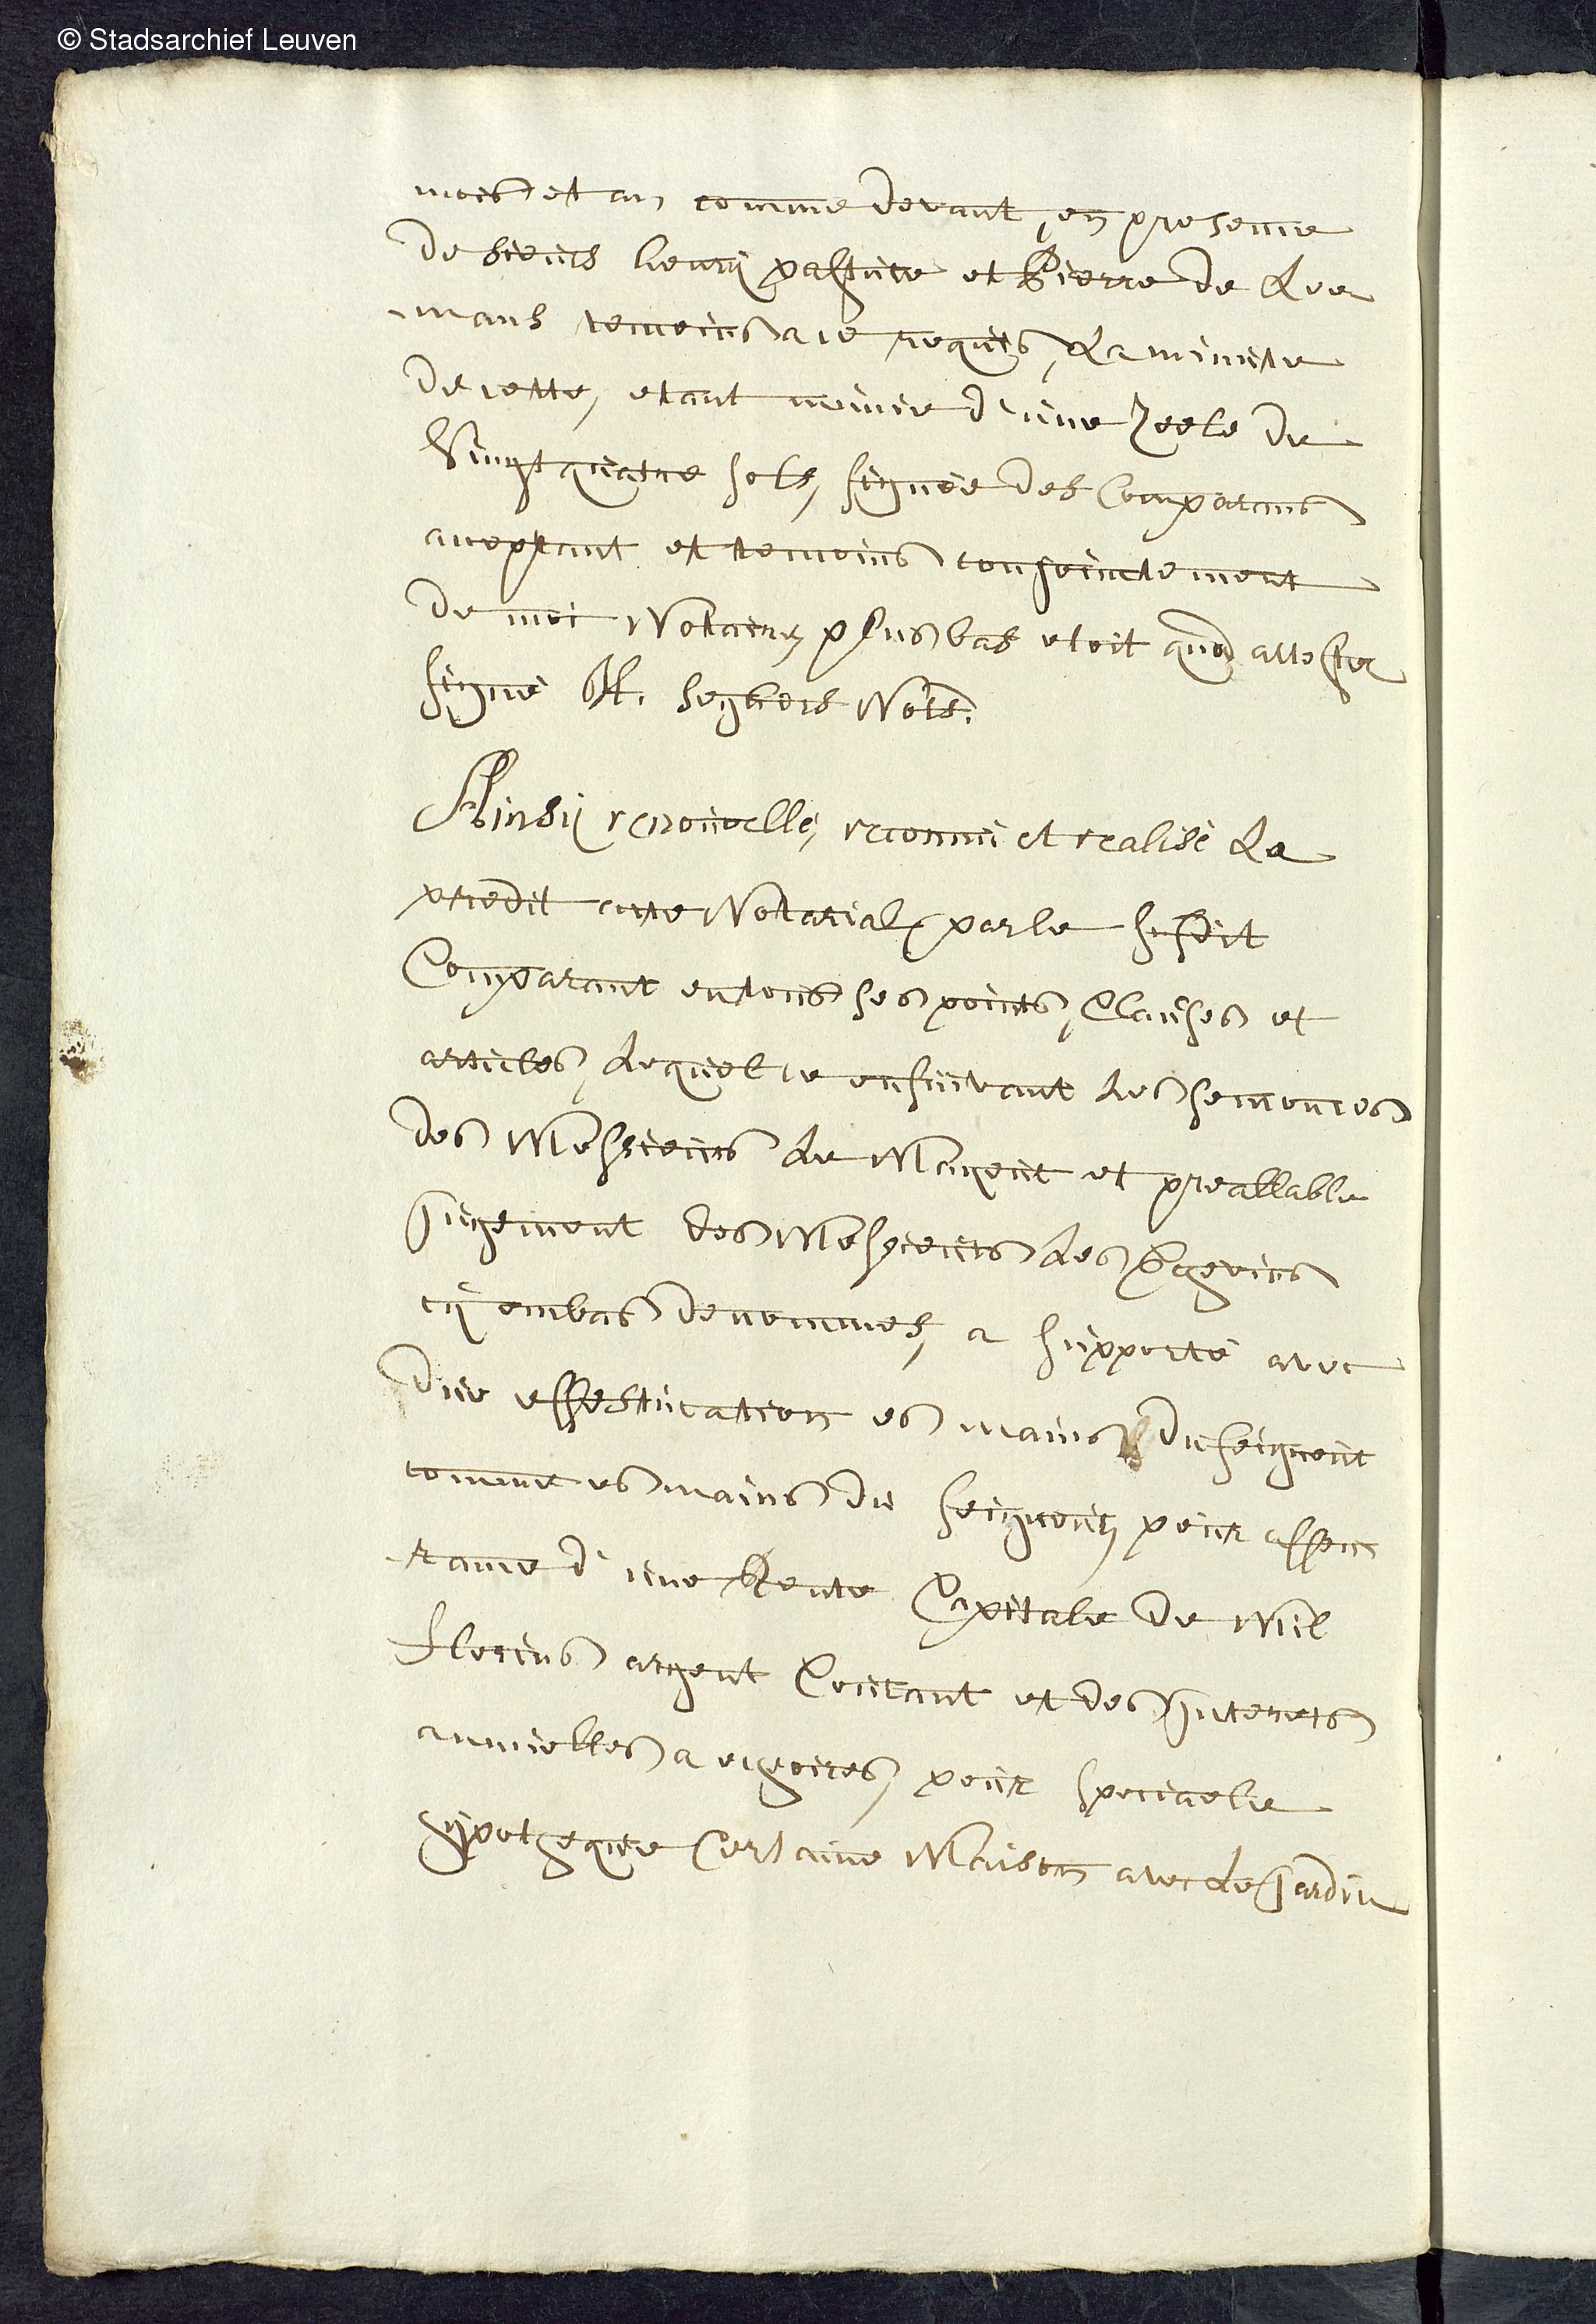 © Stadsarchief Leuven
mois et an comme devant, en presence
de sieurs henrij pasture et Pierre de Lee
mans temoins a ce requis, La minute
de cette, etant munie d'une Zeele de
Vingt quatre sols, signée des Comparans
acceptant et temoins conjointement
de moi Notair, plus bas etoit quod attestor
signé H. Seghers Nots.
Ainsij renouvellé, reconnu et realisé La
predit acte Notarial, par le susdit
Comparant en tous ses points, Clauses et
articles, Lequel ce ensuivant les semonces
des Messieurs Le Mayeur et preallable
jugement des Messieurs les Eschevins
cij embas denommes, a supporté avec
due effestucation es mains du seigneur
comme es mains du seigneur, pour asseu
rance d'une Rente Capitale de Mil
florins argent Courant et des Interets
annuelles a echeoires, pour speciaele
hijpotheque Certaine Maison avec Le Jardin